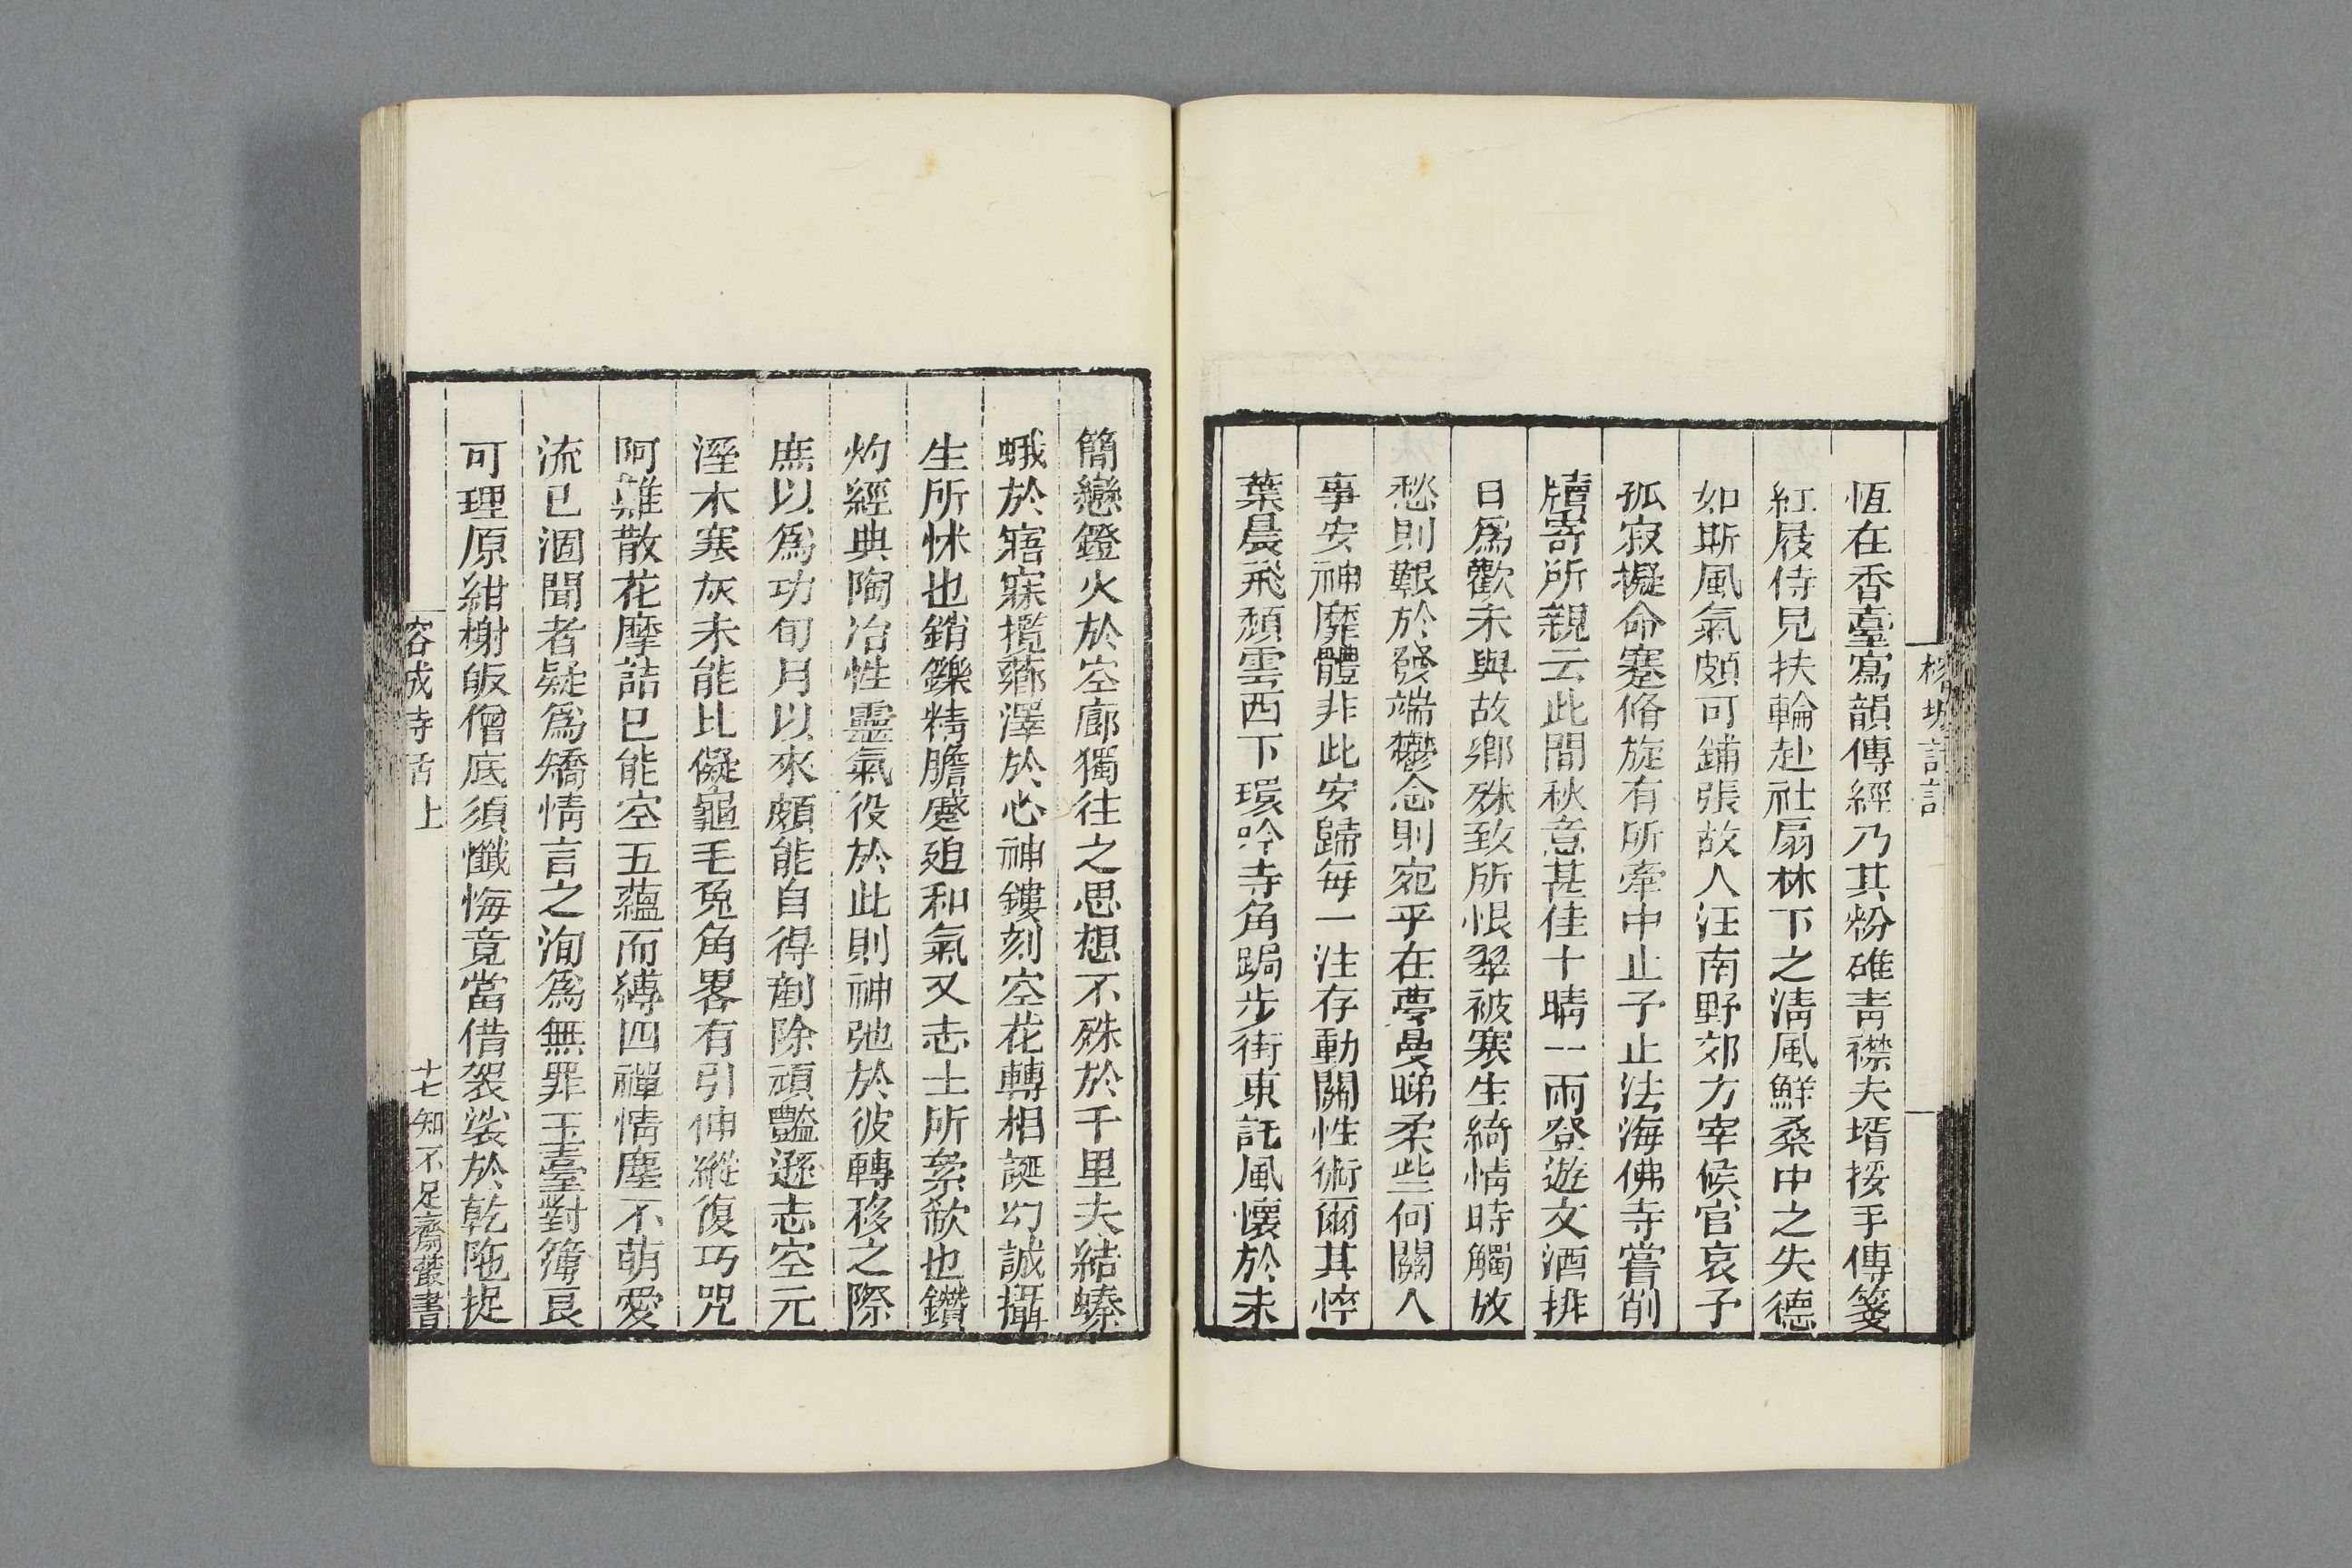 恆在香臺寫韻傳經乃其粉碓靑襟夫壻挼手傳箋
紅屐侍兒扶輪赴社扇林下之淸風鮮桑中之失德
如斯風氣頗可鋪張故人汪南野郊方宰候官哀予
孤寂擬命蹇脩旋有所牽中止予止法海佛寺嘗削
牘寄所親云此間秋意甚佳十晴一雨登遊文酒排
日爲歡未與故鄉殊致所恨翠被寒生綺情時觸放
愁則艱於發端鬱念則宛乎在夢曼睇柔些何關人
事安神靡體非此安歸每一注存動關性術爾其悴
葉晨飛頹雲西下環吟寺角跼步街東託風懷於未
簡戀鐙火於空廊獨往之思想不殊於千里夫結螓
蛾於寤寐攬薌澤於心神鏤刻空花轉相誕幻誠攝
生所怵也銷鑠精膽蹙迫和氣又志士所累欷也鑽
灼經典陶冶性靈氣役於此則神弛於彼轉移之際
庶以爲功旬月以來頗能自得剷除頑豔遜志空元
溼木寒灰未能比儗龜毛兔角畧有引伸縱復巧咒
阿難散花摩詰已能空五蘊而縛四禪情塵不萌愛
流已涸聞者疑爲矯情言之洵爲無罪玉臺對簿良
可理原紺榭皈僧底須懺悔竟當借袈裟於乾陁捉
容成
上
十七
知不足齋叢書